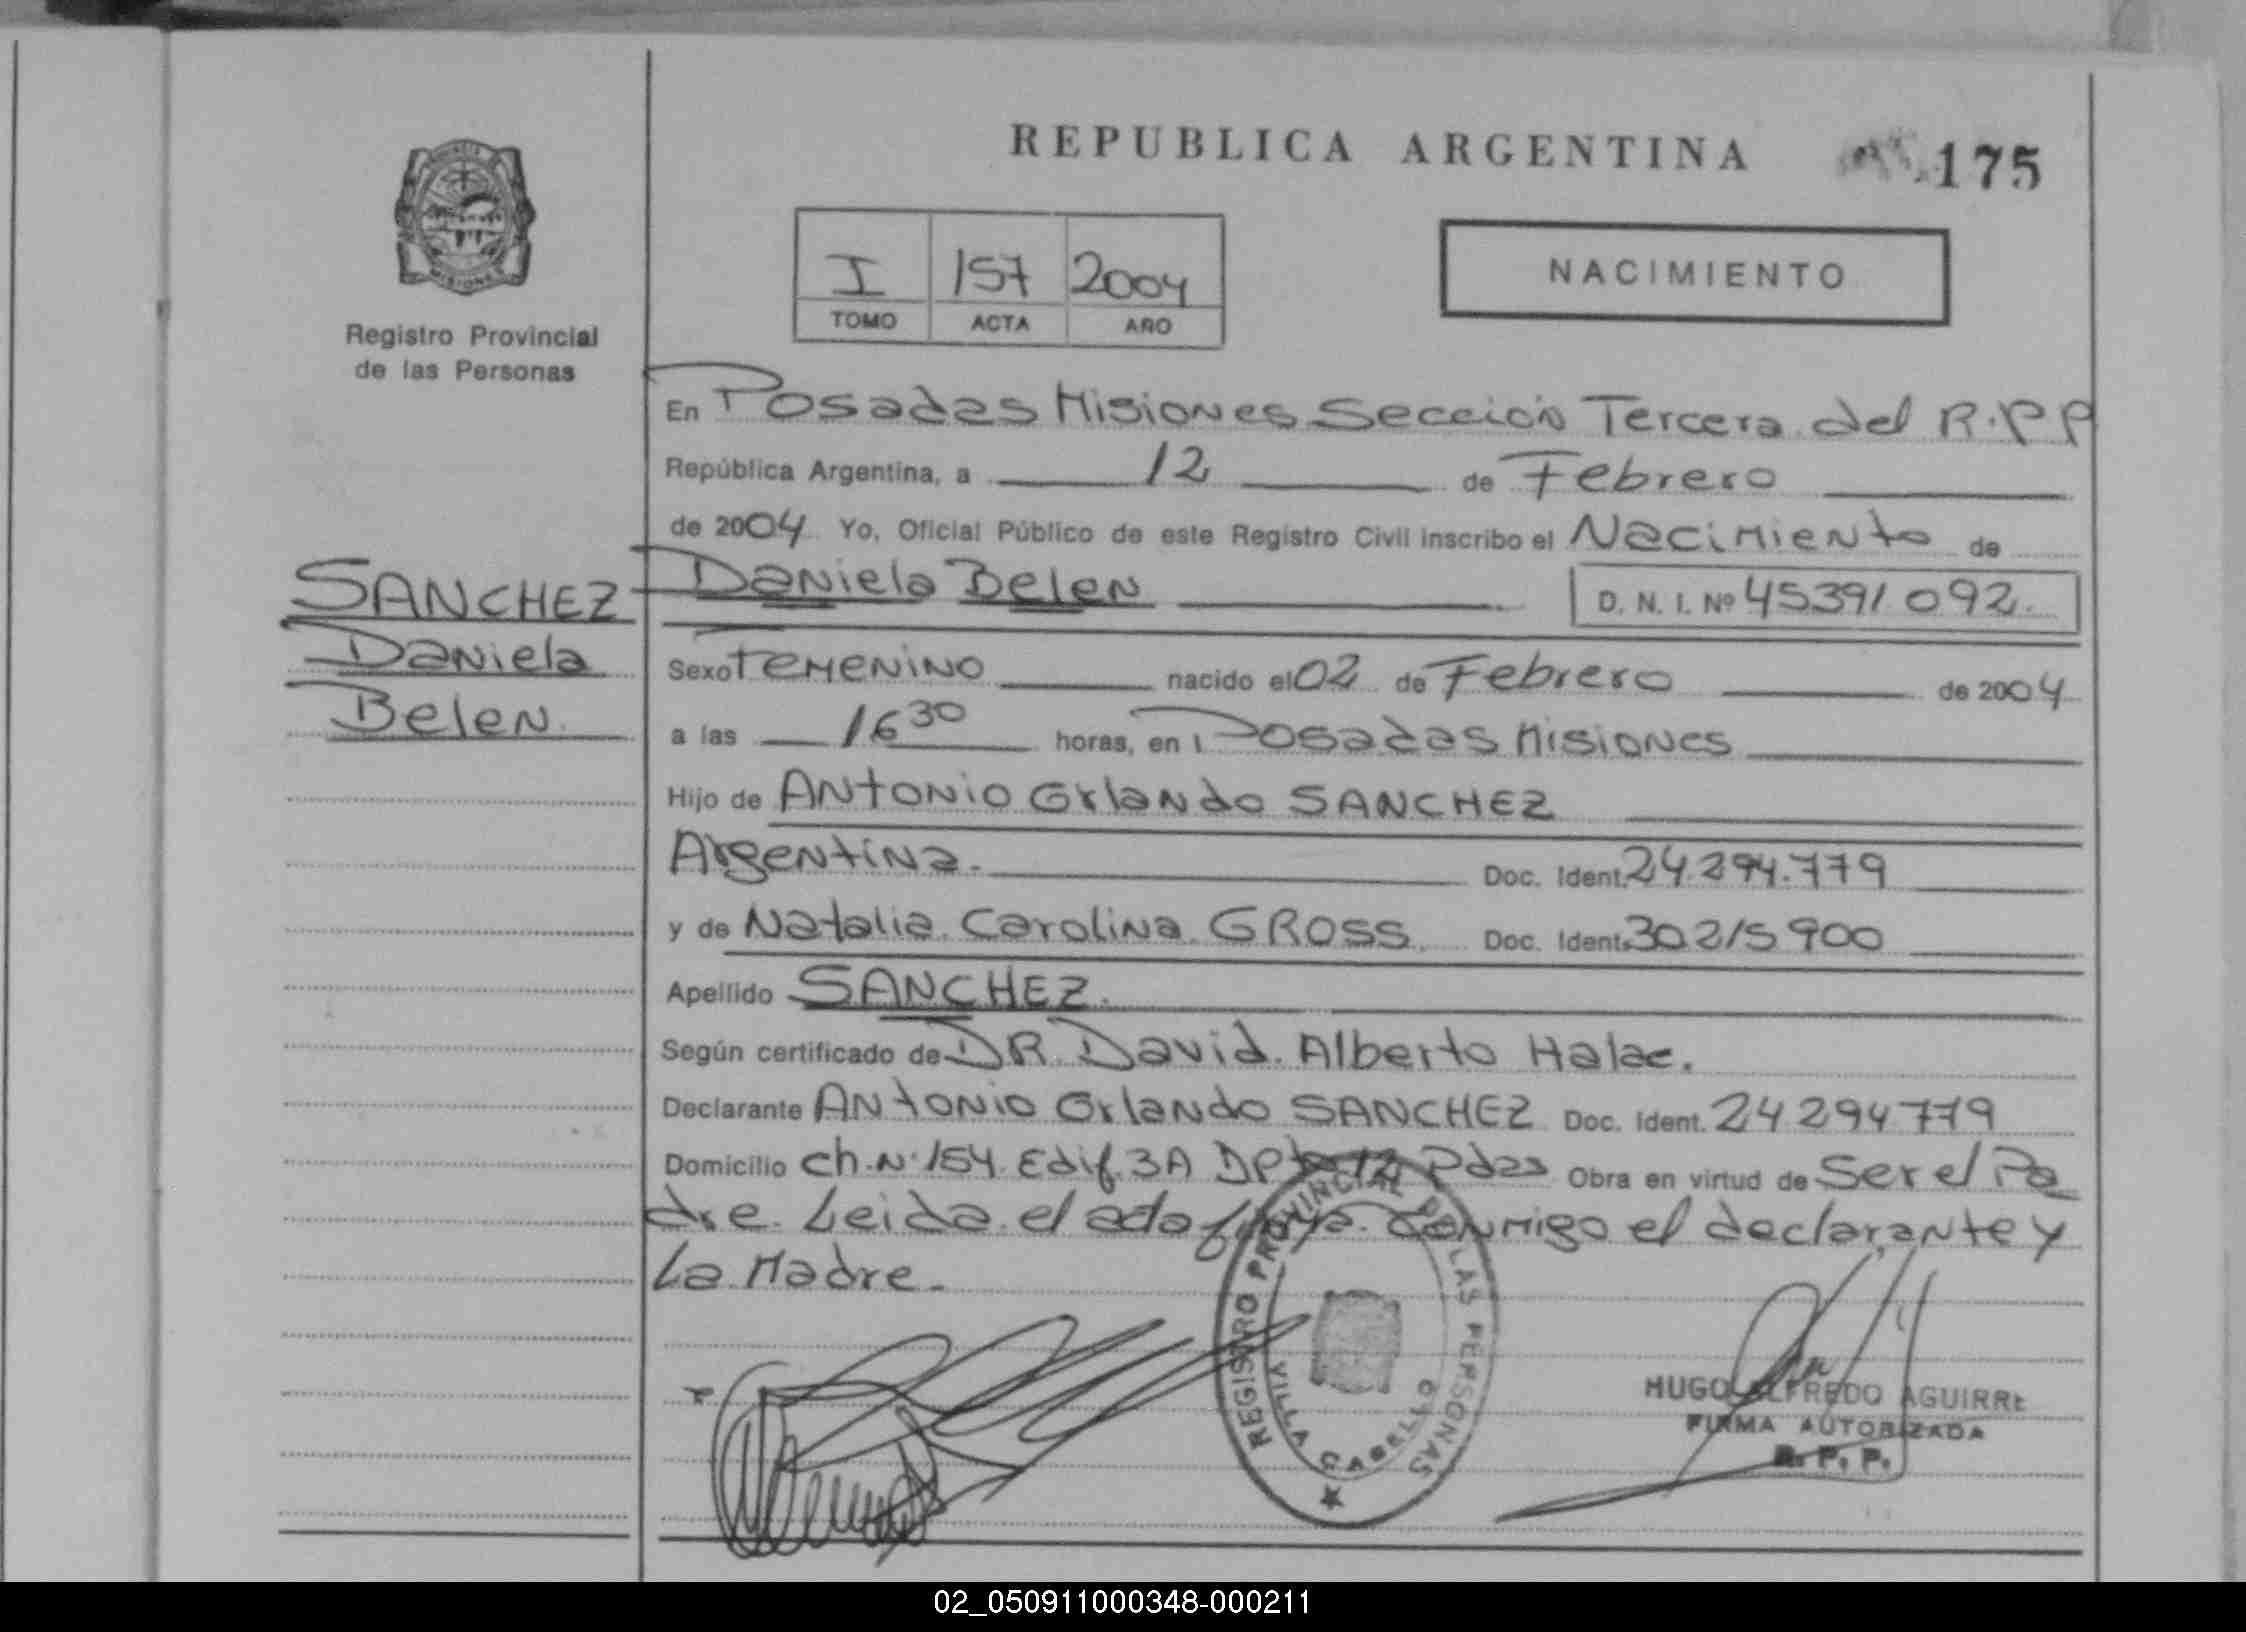 REPUBLICA ARGENTINA
175
PROVINCIA DE
MISIONES
Registro Provincial
de las Personas
I 157 2004
TOMO ACTA AÑO
NACIMIENTO
En Posadas Misiones Sección Tercera del R.P.P
República Argentina, a 12 de Febrero
de 2004 Yo, Oficial Público de este Registro Civil inscribo el Nacimiento de
SANCHEZ
Daniela
Belen
Daniela Belen D. N. I. Nº 45391092.
Sexo Femenino nacido el 02 de Febrero de 2004
a las 16 30 horas, en Posadas Misiones
Hijo de Antonio Orlando SANCHEZ
Argentina. Doc. Ident. 24.294.779
y de Natalia Carolina GROSS. Doc. Ident. 30215900
Apellido SANCHEZ.
Según certificado de DR. David Alberto Halac.
Declarante Antonio Orlando SANCHEZ Doc. Ident. 24294779
Domicilio Ch. Nº 154 Edif. 3A Dpto 12 Pdas Obra en virtud de Ser el Pa
dre. Leida el acta firma conmigo el declarante y
La Madre.
REGISTRO PROVINCIAL DE LAS PERSONAS
VILLA CABELLO
HUGO ALFREDO AGUIRRE
FIRMA AUTORIZADA
R. P. P.
02_050911000348-000211